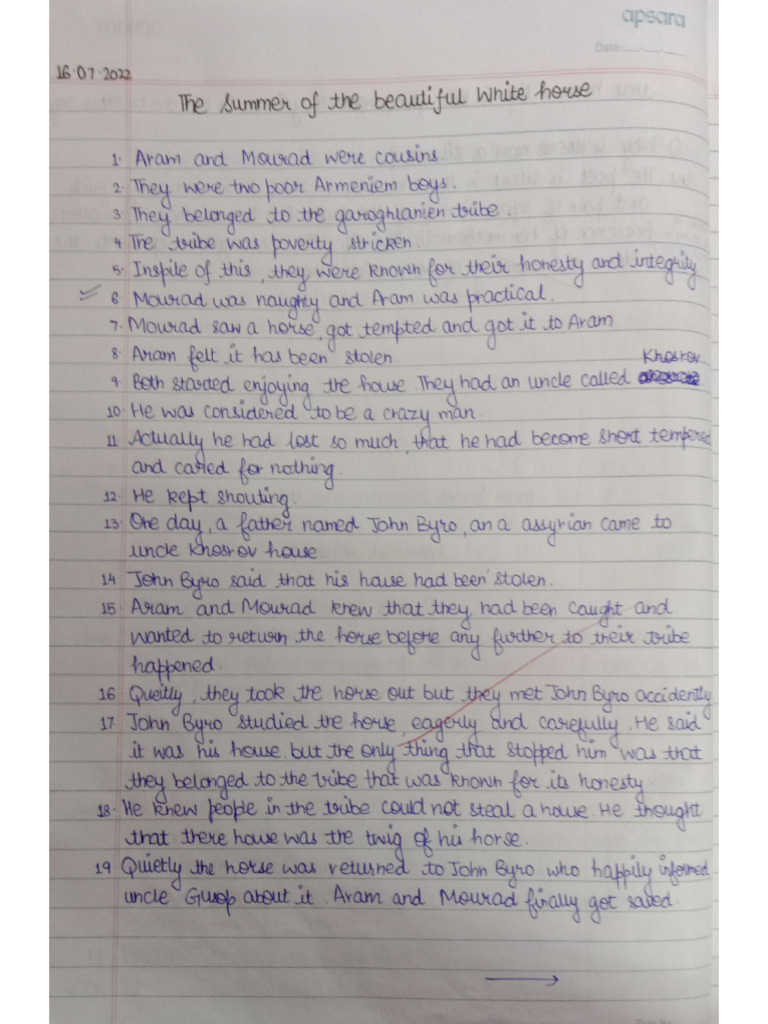 apsara
Date:
16.07.2022
The Summer of the beautiful White horse
1. Aram and Mourad were cousins.
2. They were two poor Armeniem boys.
3. They belonged to the garoghlanien tribe.
4 The tribe was poverty stricken.
5. Inspite of this, they were known for their honesty and integrity
6. Mourad was naughty and Aram was practical.
7. Mourad saw a horse, got tempted and got it to Aram
8. Aram felt it has been stolen
Khosrov
9. Both started enjoying the house. They had an uncle called
10. He was considered to be a crazy man.
11. Actually he had lost so much, that he had become short tempered
and carled for nothing.
12. He kept shouting.
13. One day, a father named John Byro, an a assyrian came to
uncle Khosrov house.
14 John Byro said that his hause had been stolen.
15 Aram and Mourad knew that they had been caught and
wanted to return the horse before any further to their tribe
happened.
16 Queitly, they took the horse out but they met John Byro accidently
17. John Byro studied the horse, eagerly and carefully. He said
it was his house but the only thing that stopped him was that
they belonged to the tribe that was known for its honesty
18. He knew people in the tribe could not steal a house. He thought
that there howe was the twig of his horse.
19 Quietly the horse was returned to John Byro who happily informed
uncle Gusop about it. Aram and Mourad finally got saved.